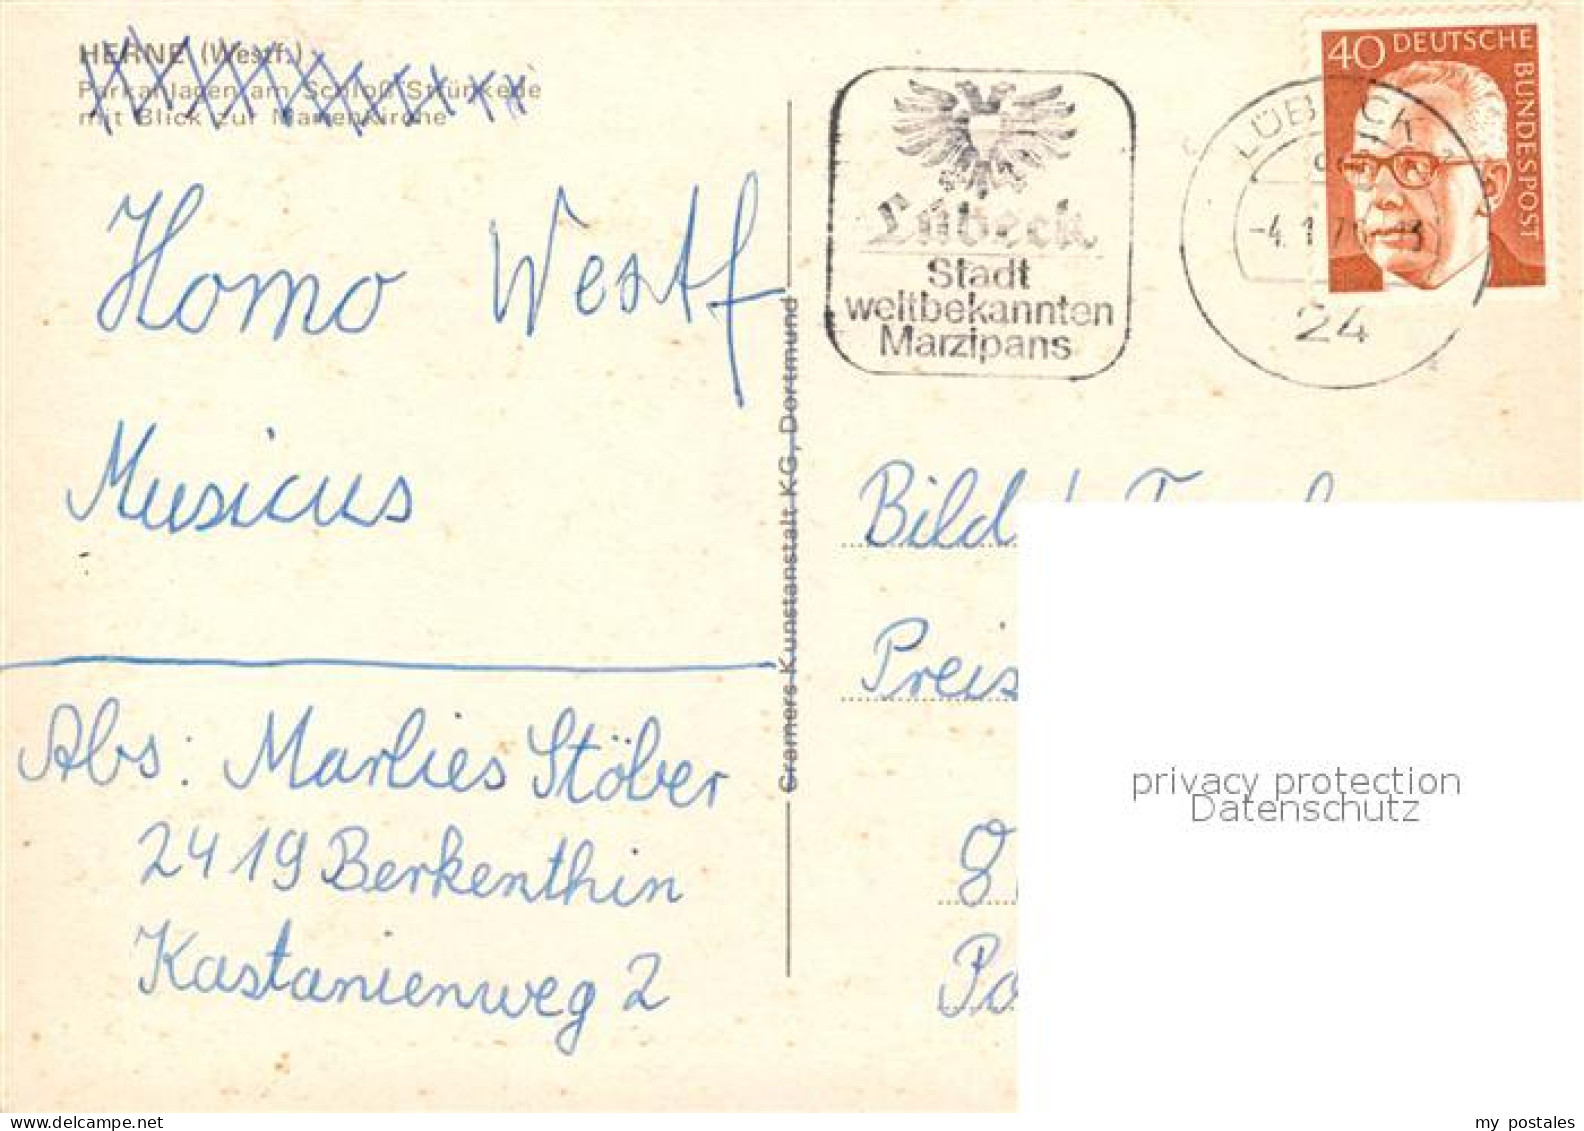 HERNE (Westf.)
Parkanlagen am Schloß Strünkede
mit Blick zur Marienkirche
Homo Westf
Musicus
Abs: Marlies Stöber
2419 Berkenthin
Kastanienweg 2
Gramers Kunstanstalt KG, Dortmund
Lübeck
Stadt
weltbekannten
Marzipans
LÜBECK
-4.1.7
24
40 DEUTSCHE
BUNDESPOST
Bild
Preis
privacy protection
Datenschutz
my postales